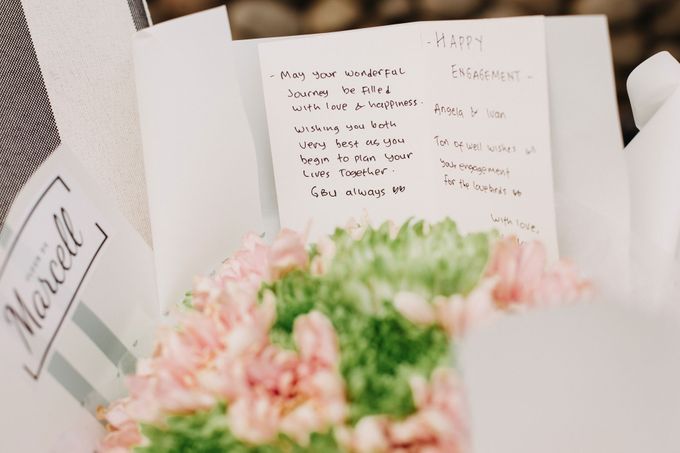 - May your wonderful
Journey be filled
with love & happiness.
wishing you both
very best as you
begin to plan your
Lives Together.
GBU always ♥♥
- HAPPY
ENGAGEMENT -
Angela & Ivan
Ton of well wishes on
your engagement
for the lovebirds ♥♥
with love,
Marcell